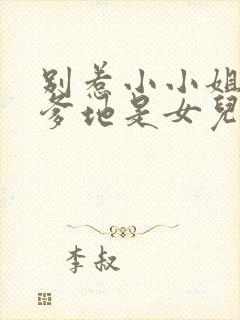 别惹小小姐
爹地是女兒
李叔